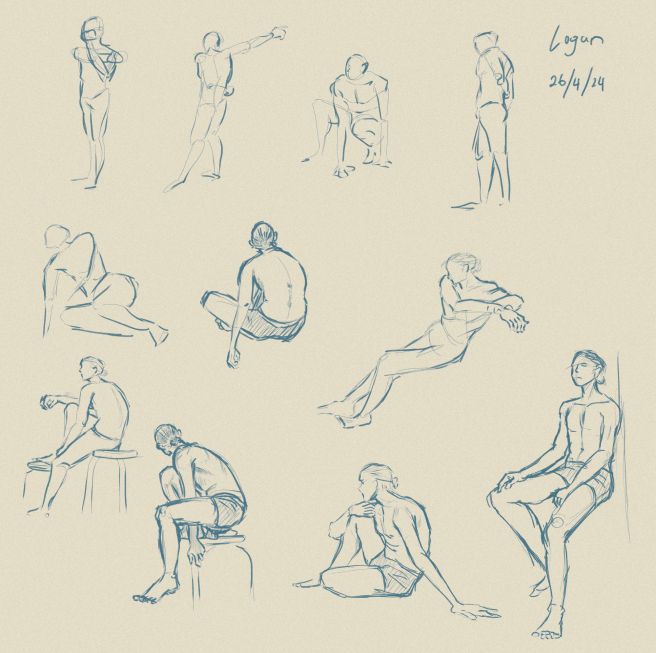 Logan
26/4/24